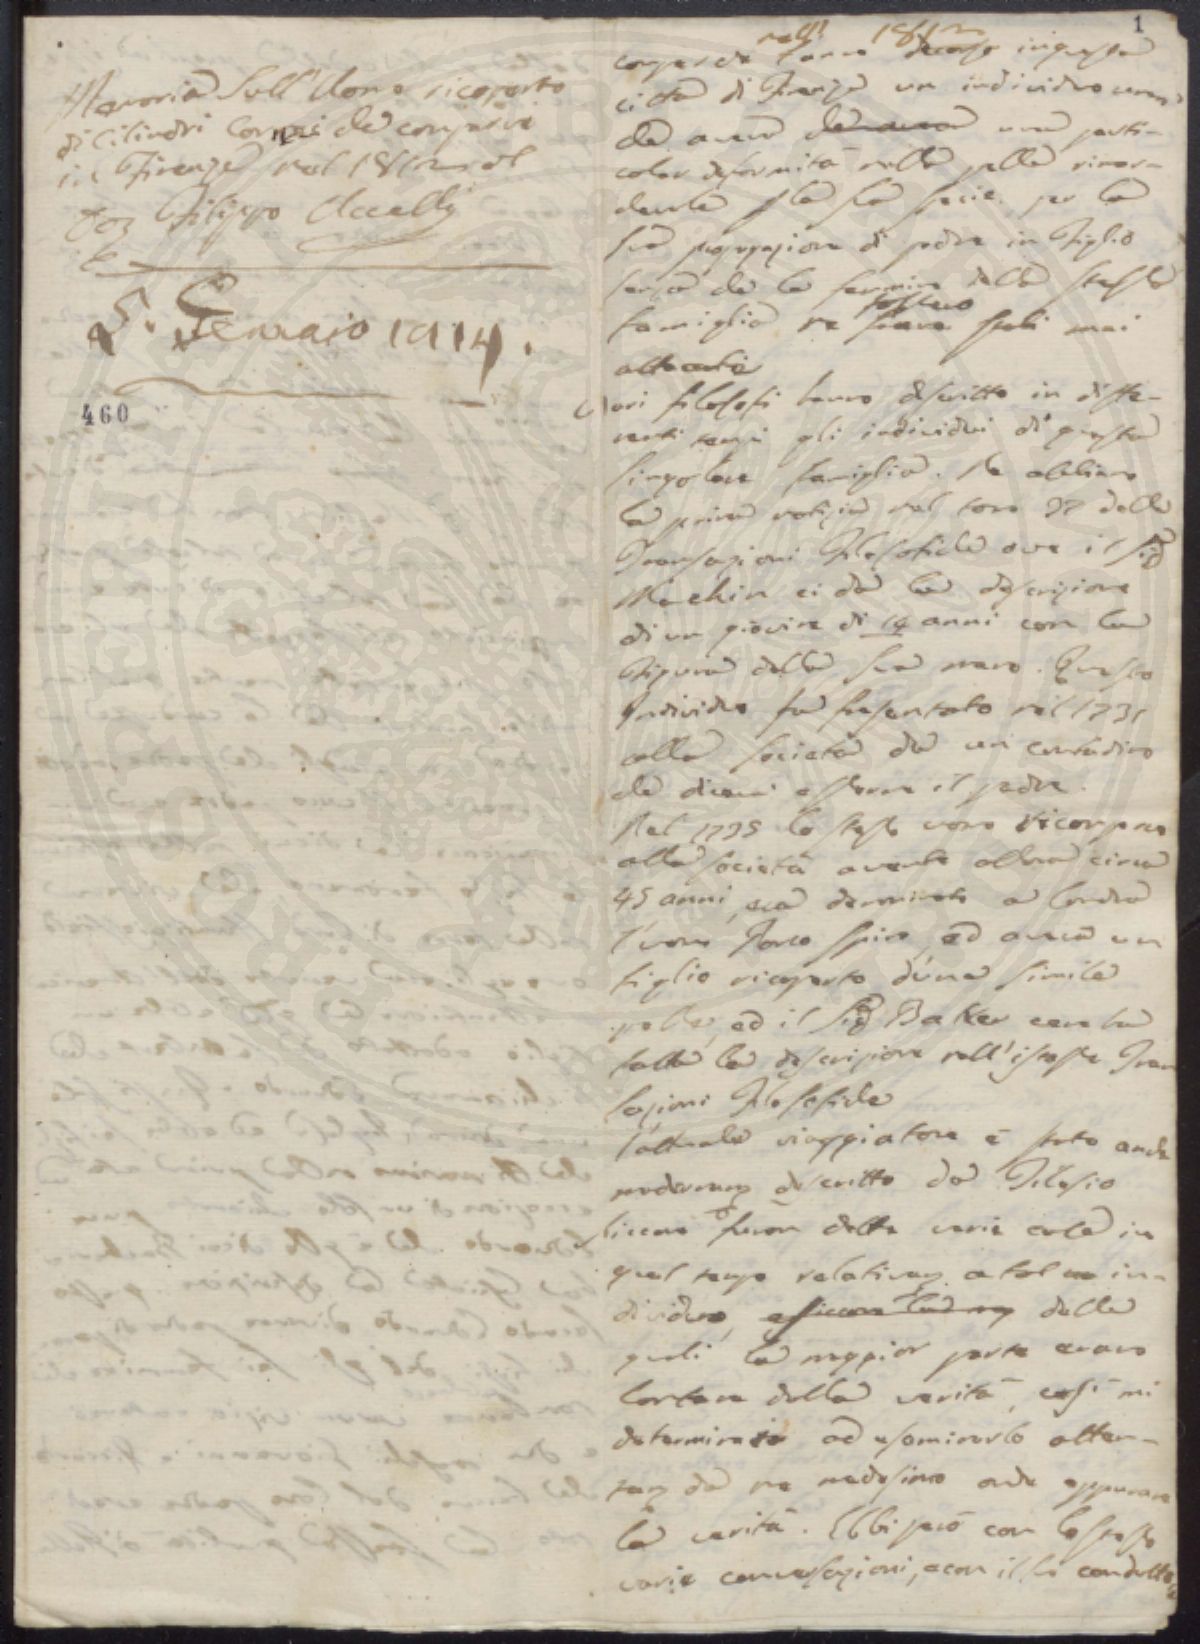 Memoria sull'Uomo ricoperto
di Cilindri Cornei che comparve
in Firenze nel 1812 del
Filippo Uccelli
5. Gennaio 1914.
460
1
nell' 1812
comparve l'anno decorso in questa
città di Firenze un individuo
che aveva che aveva una parti-
colar deformità nella pelle rimar-
devole sia la specie, per la
sua propagazione di padre in Figlio
senza che le femmine della stessa
famiglia ne fossero stati mai
attaccati
Vari filosofi hanno descritto in diffe-
renti tempi gli individui di questa
singolare famiglia. Ne abbiamo
la prima notizia nel tomo 37 delle
Transazioni Filosofiche ove il Sig
Machin ci dà la descrizione
di un giovine di 14 anni con la
Figura della sua mano. Questo
Individuo fu presentato nel 1731
alla società da un contadino
che diceva esserne il padre.
Nel 1755 lo stesso uomo ricomparve
alla società avente allora circa
45 anni, era denominato a Londra
l'uomo Porco spino, ed aveva un
figlio ricoperto d'una simile
pelle, ed il Sig Baker ce ne ha
fatta la descrizione nell'istesse Tran
sazioni Filosofiche
l'attuale viaggiatore è stato anche
modernam descritto da Tilesio
siccome furon dette varie cose in
quel tempo relativam a tal in-
dividuo, delle
quali la maggior parte erano
lontane dalla verità, così mi
determinai ad esaminarlo atten-
tam da me medesimo onde appurare
la verità. Ebbi però con lo stesso
varie conversazioni, e con il suo condutto